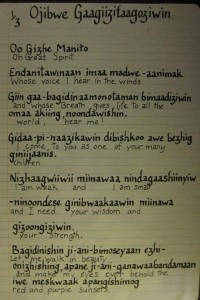 1/3 Ojibwe Gaagiizitaagoziwin
Oo Gizhe Manito
Oh Great Spirit
Endanitawinaan imaa madwe-aanimak
Whose voice I hear in the winds
Giin gaa-bagidinaamonotaman bimaadiziwin
and whose Breath gives life to all the
omaa akiing, noondawishin.
world, hear me!
Gidaa-pi-naazikawin dibishkoo awe bezhig
I come to you as one of your many
giniijaanis.
children
Nizhaagwiiwii miinawaa nindagaashiinyiw
I am weak and I am small
-ninoondese ginibwaakaawin miinawa
and I need your wisdom and
gizoongiziwin.
your strength.
Bagidinishin ji-ani-bimoseyaan ezhi-
Let me walk in beauty
onizhishing, apane ji-ani-ganawaabandamaan
and make my eyes ever behold the
iwe meskwaak apangishimog
red and purple sunsets.